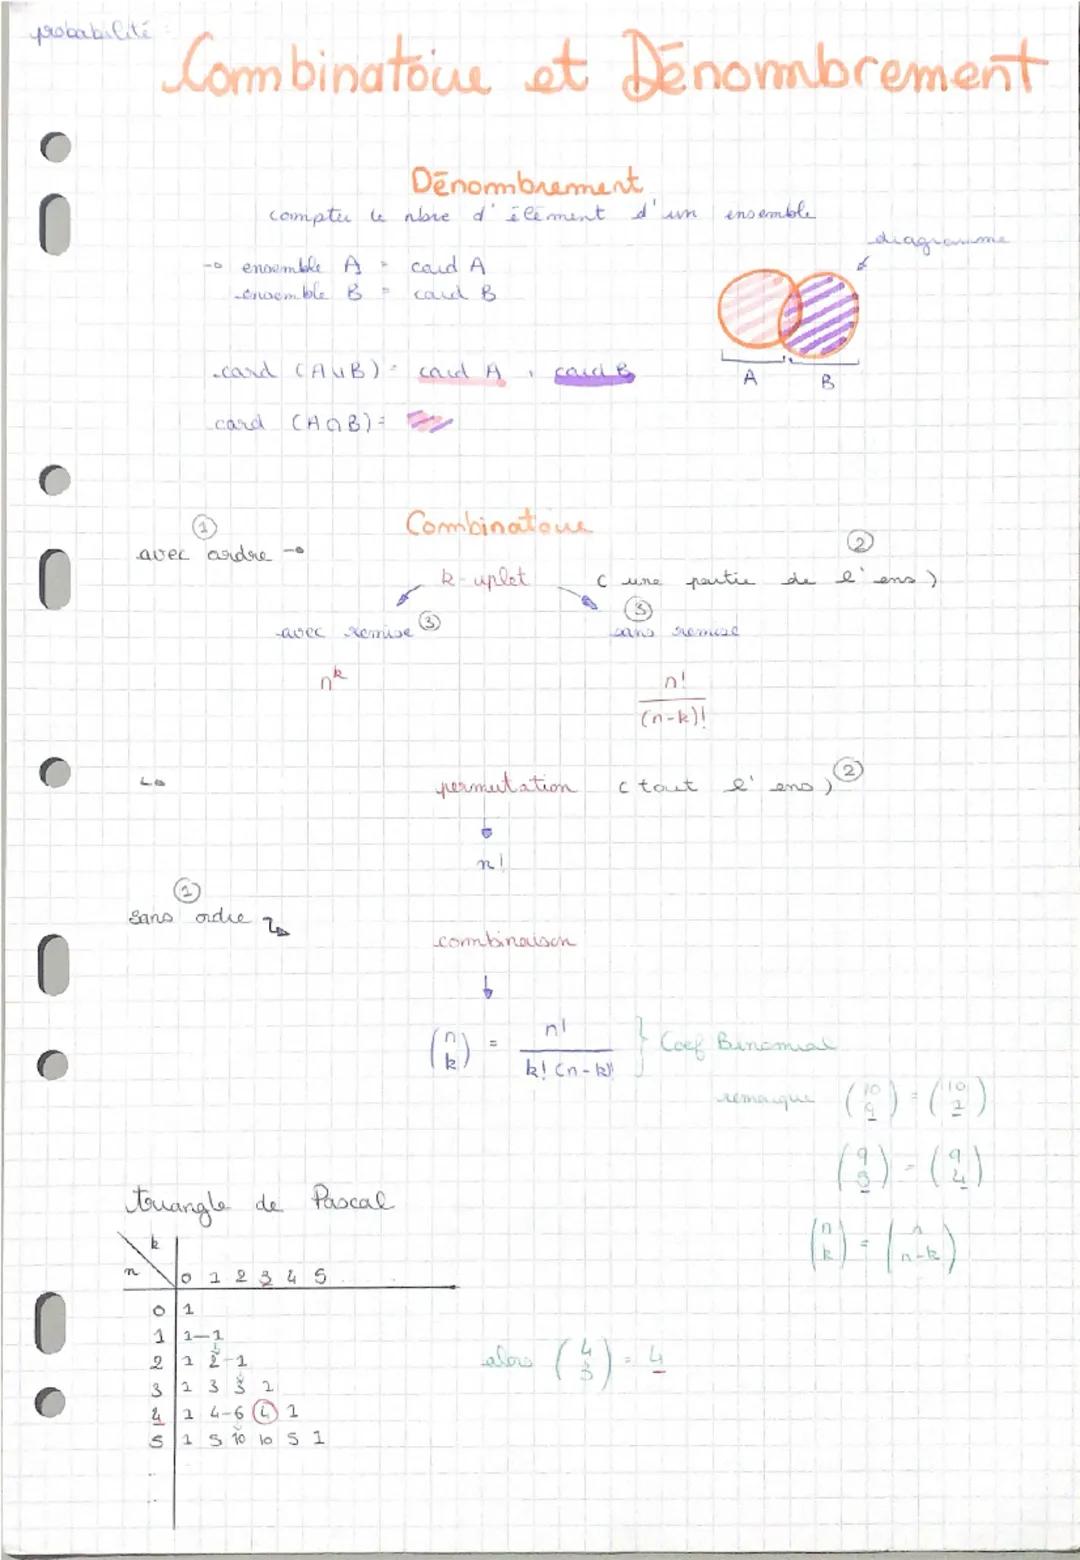 probabilité :
Combinatoire et Dénombrement
Dénombrement
compter le nbre d'élément d'un ensemble
diagramme
→ ensemble A = card A
ensemble B = card B
A B
card (A∪B) = card A + card B
card (A∩B) =
Combinatoire
① avec ordre →
k-uplet (une partie de l'ens) ②
avec remise ③ sans remise ③
n^k n!/(n-k)!
↳ permutation (tout l'ens) ②
n!
① sans ordre
combinaison
(n k) = n!/(k!(n-k)!) } Coef Binomial
remarque (10 9) = (10 1)
(9 5) = (9 4)
(n k) = (n n-k)
triangle de Pascal
k
n 0 1 2 3 4 5 ...
0 1
1 1-1
2 1 2-1
3 1 3 3 1
4 1 4-6 4 1
5 1 5 10 10 5 1
alors (4 3) = 4